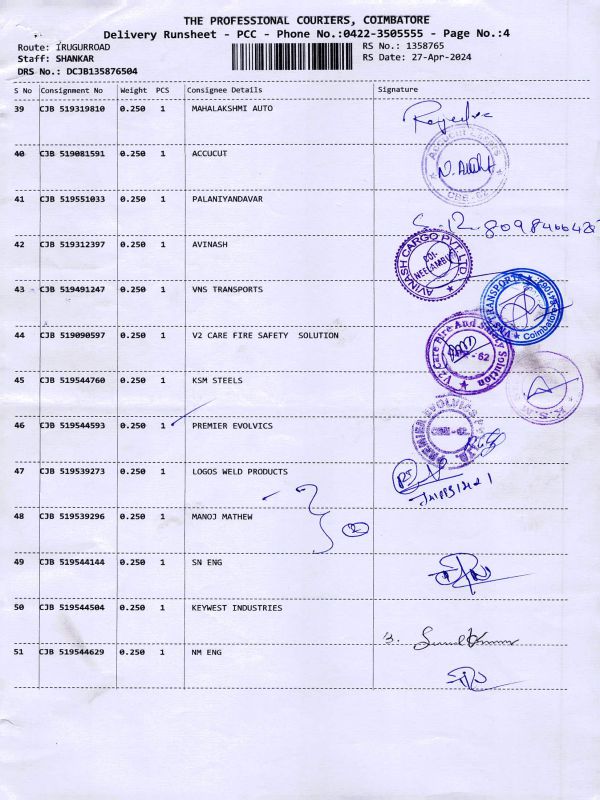 THE PROFESSIONAL COURIERS, COIMBATORE
Delivery Runsheet - PCC - Phone No.:0422-3505555 - Page No.:4
Route: IRUGURROAD RS No.: 1358765
Staff: SHANKAR RS Date: 27-Apr-2024
DRS No.: DCJB135876504
S No Consignment No Weight PCS Consignee Details Signature
39 CJB 519319810 0.250 1 MAHALAKSHMI AUTO
40 CJB 519081591 0.250 1 ACCUCUT
41 CJB 519551033 0.250 1 PALANIYANDAVAR
42 CJB 519312397 0.250 1 AVINASH
AVINASH CARGO PVT. LTD.
43 CJB 519491247 0.250 1 VNS TRANSPORTS
VNS TRANSPORTS Coimbatore
44 CJB 519090597 0.250 1 V2 CARE FIRE SAFETY SOLUTION
V2 Care Fire And Safety Solution
45 CJB 519544760 0.250 1 KSM STEELS
46 CJB 519544593 0.250 1 PREMIER EVOLVICS
PREMIER EVOLVICS
47 CJB 519539273 0.250 1 LOGOS WELD PRODUCTS
48 CJB 519539296 0.250 1 MANOJ MATHEW
2
49 CJB 519544144 0.250 1 SN ENG
50 CJB 519544504 0.250 1 KEYWEST INDUSTRIES
51 CJB 519544629 0.250 1 NM ENG